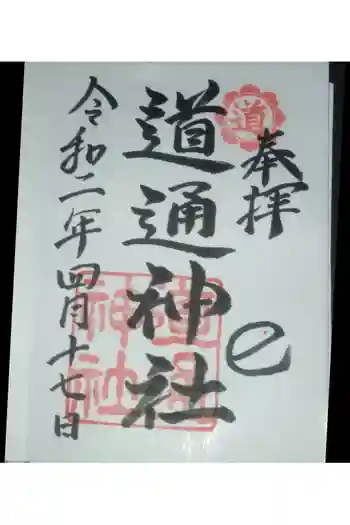 奉拝
道
道通神社
道通神社
令和二年四月十七日